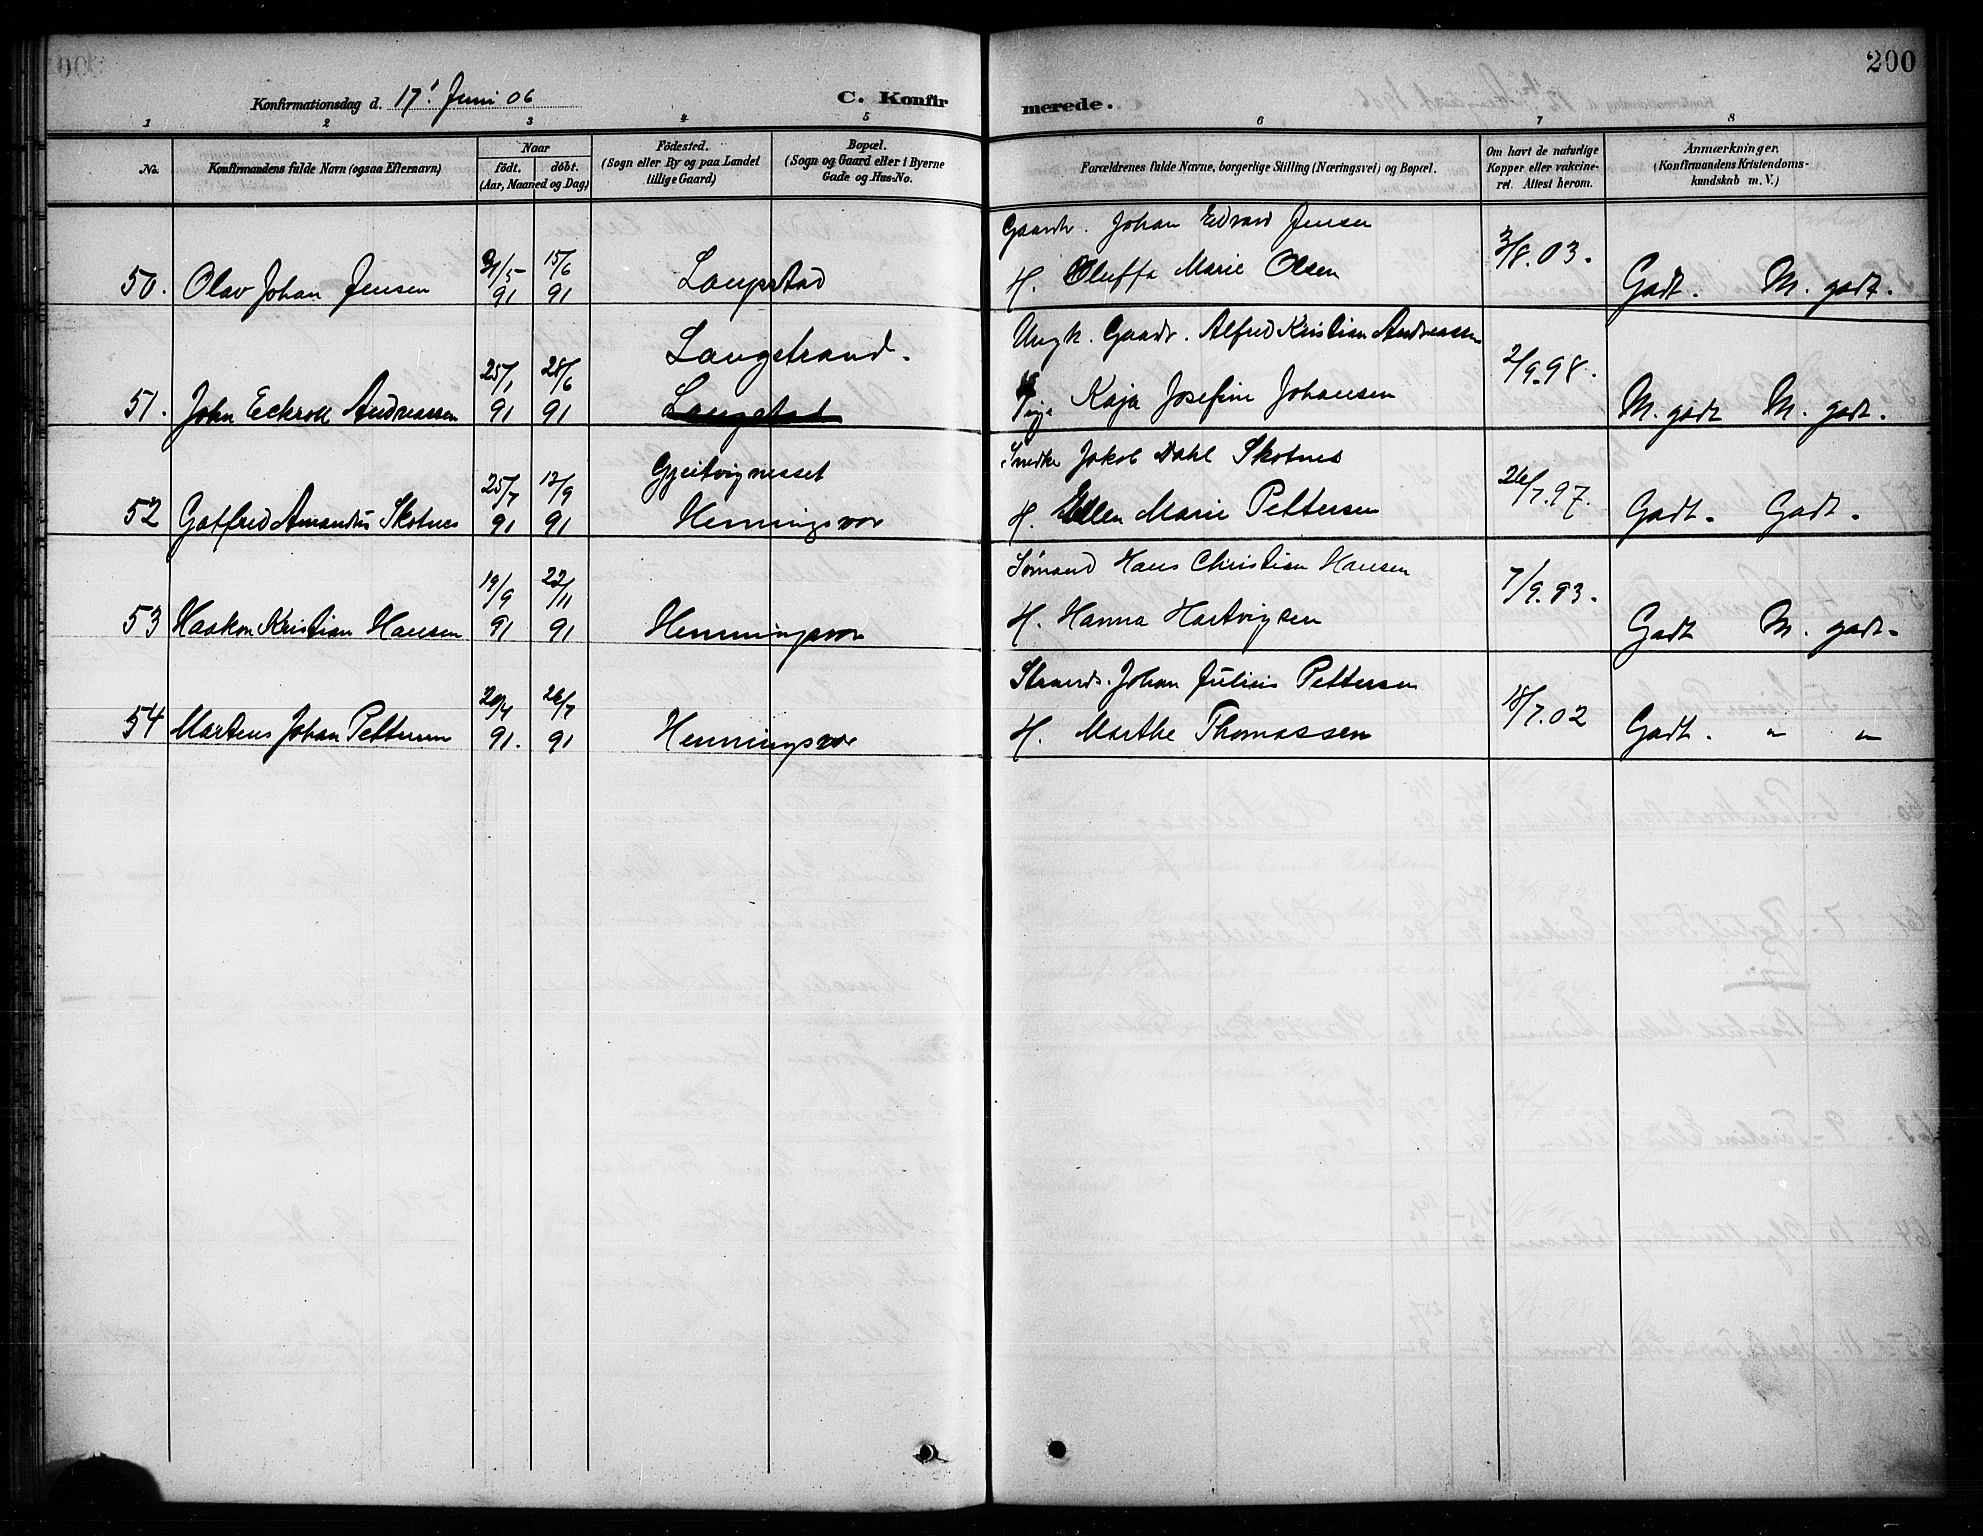 200
Konfirmationsdag d. 17' Juni 06
C. Konfirmerede.
1 2 3 4 5 6 7 8
No.
Konfirmandens fulde Navn (ogsaa Efternavn)
Naar
födt. döbt.
(Aar, Maaned og Dag)
Födested.
(Sogn eller By og paa Landet
tillige Gaard)
Bopæl.
(Sogn og Gaard eller i Byerne
Gade og Hus-No.
Forældrenes fulde Navne, borgerlige Stilling (Næringsvei) og Bopæl.
Om havt de naturlige
Kopper eller vakcine-
ret. Attest herom.
Anmærkninger.
(Konfirmandens Kristendoms-
kundskab m. V.)
Gaardr. Johan Edvard Jensen
50. Olav Johan Jensen 31/5 91 15/6 91 Laupstad H. Oluffa Marie Olsen 3/8.03. Godt. M. godt.
Ungk. Gaardr. Alfred Kristian Andreassen
Laugstrand.
51. John Eckroll Andreassen 25/1 91 28/6 91 Pige Kaja Josefine Johansen 2/9.98. M. godt M. godt.
Snedker Jakob Dahl Skotnes
Gjeitvignesset
52 Gotfred Amandus Skotnes 25/7 91 13/9 91 Henningsvær H. Ellen Marie Pettersen 26/7.97. Godt. Godt.
Sömand Hans Christian Hansen
53 Haakon Kristian Hansen 19/9 91 22/11 91 Henningsvær H. Hanna Hartvigsen 7/9.93. Godt M. godt.
Strands. Johan Julius Pettersen
54 Martens Johan Pettersen 20/4 91. 26/7 91 Henningsvær H. Marthe Thomassen 18/7.02 Godt. " "